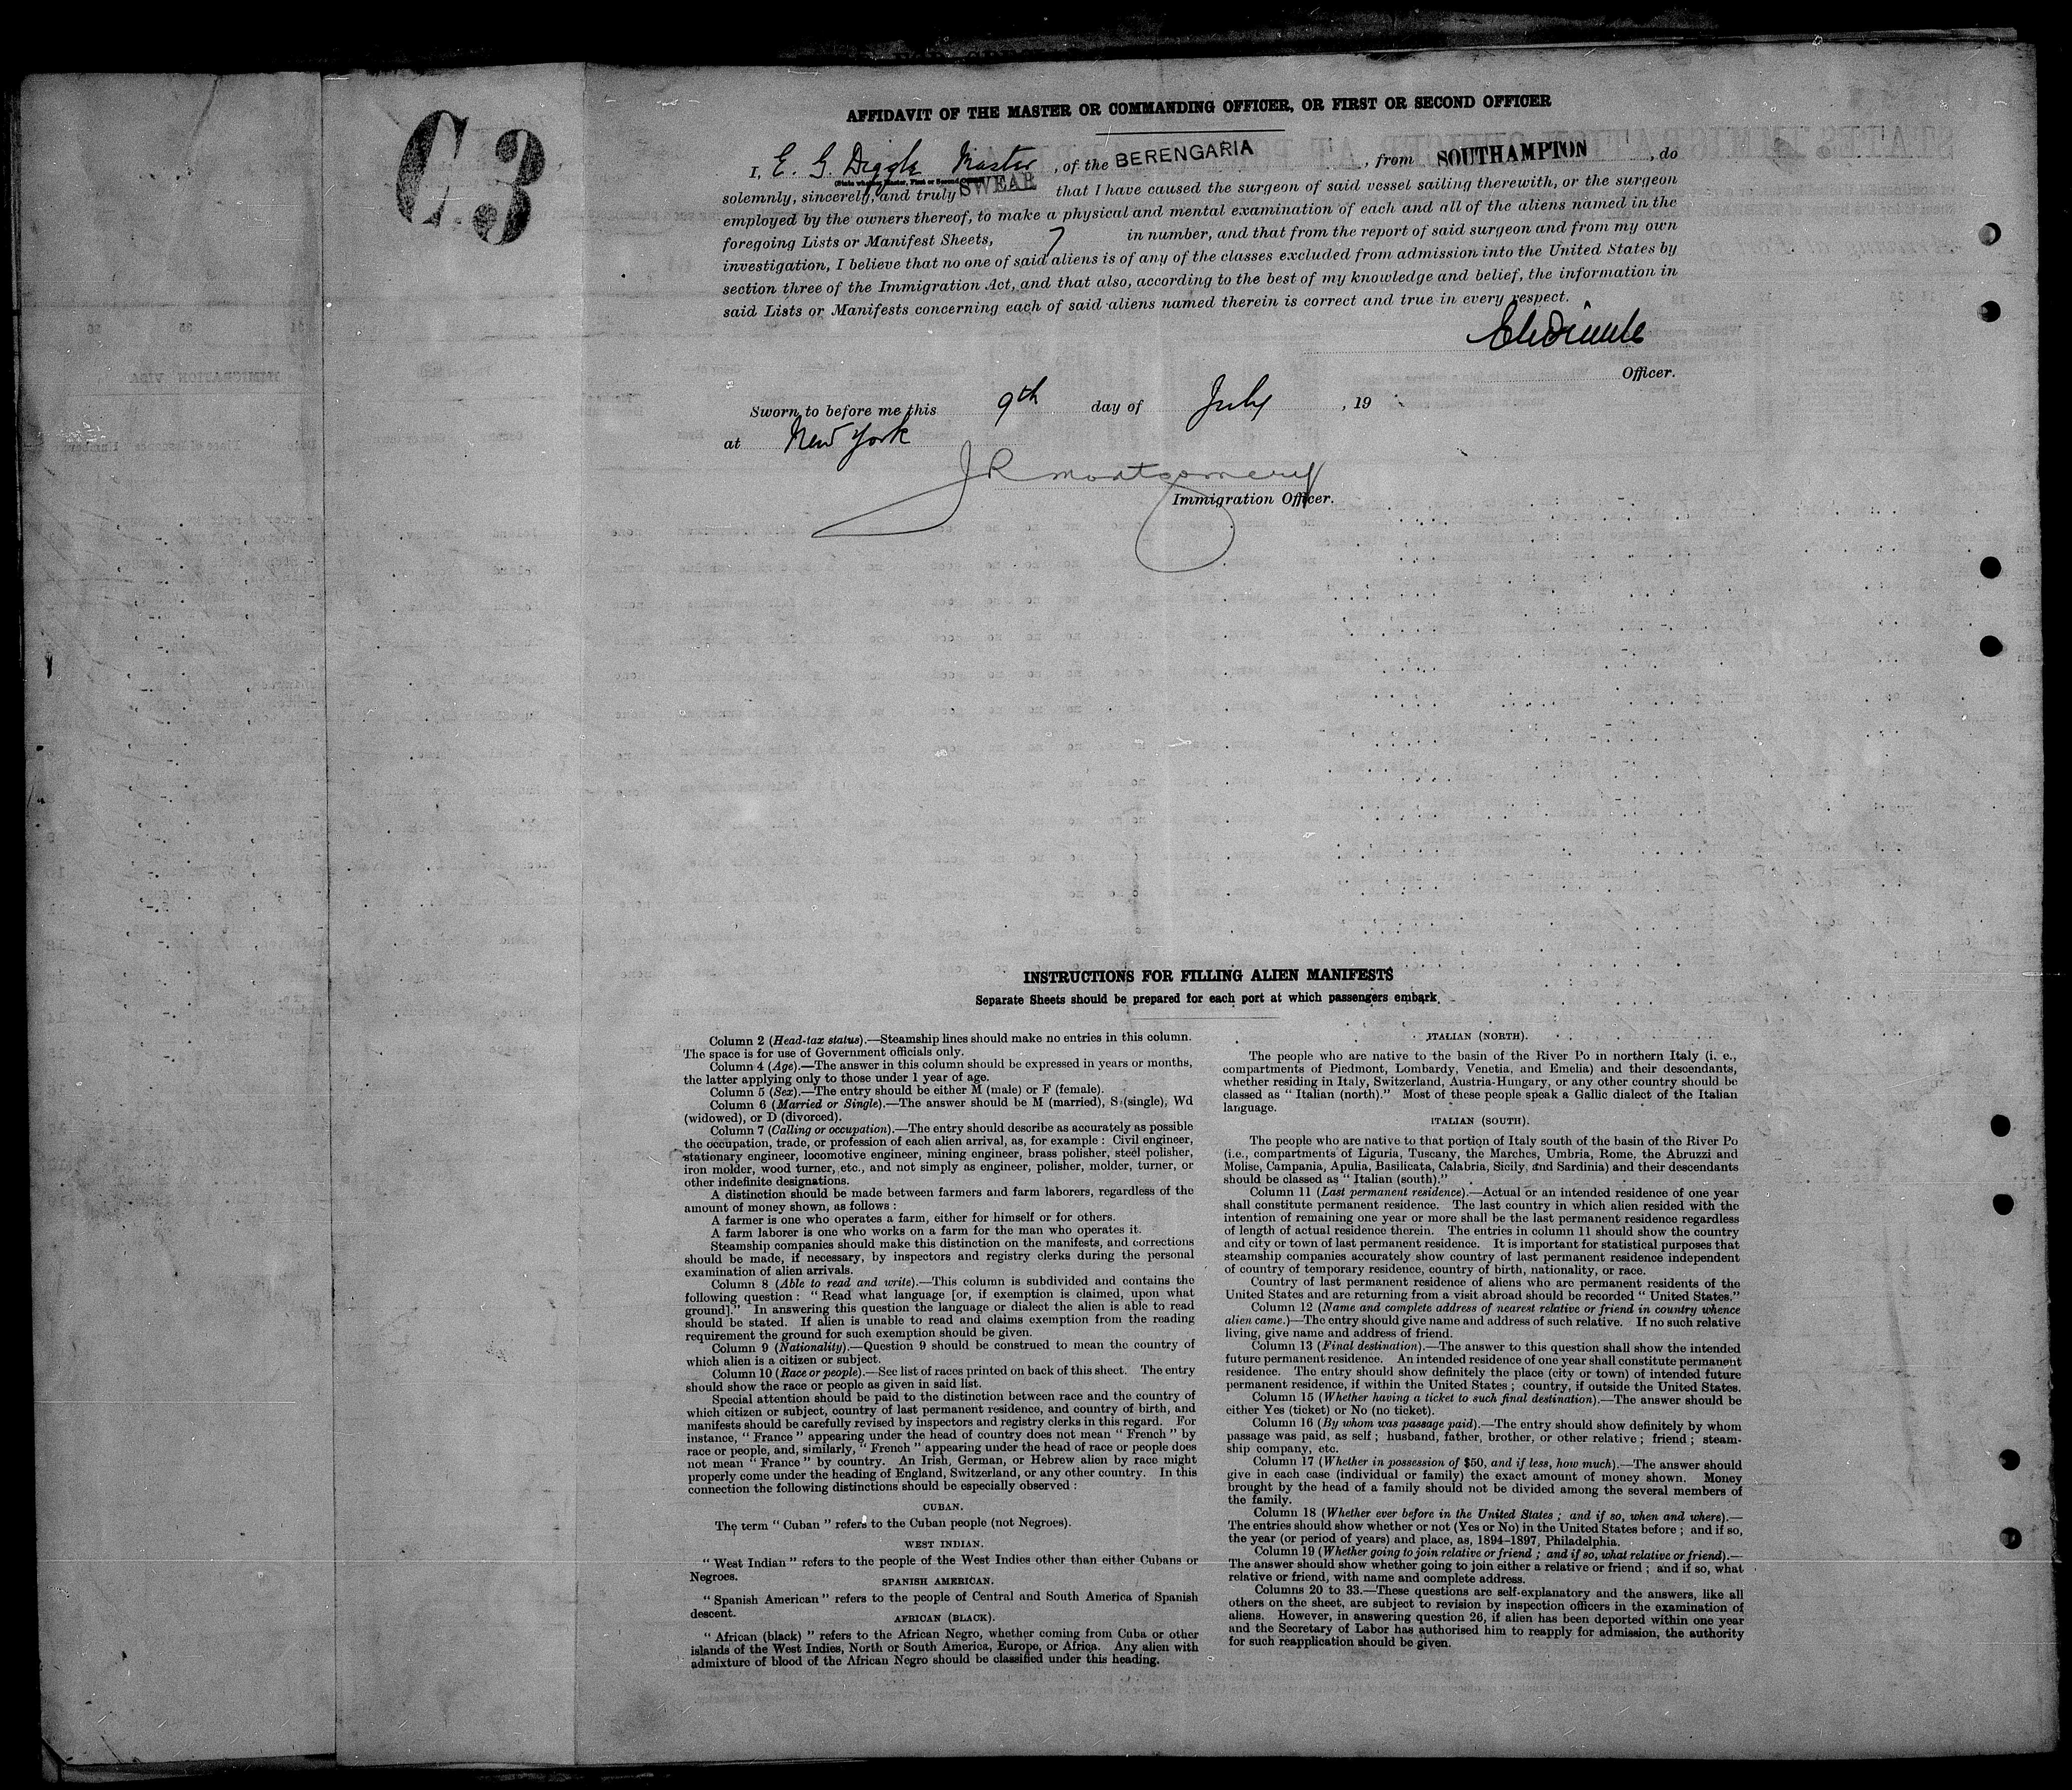 C3
AFFIDAVIT OF THE MASTER OR COMMANDING OFFICER, OR FIRST OR SECOND OFFICER
I, E. G. Diggle Master, of the BERENGARIA, from SOUTHAMPTON, do
solemnly, sincerely, and truly SWEAR that I have caused the surgeon of said vessel sailing therewith, or the surgeon
employed by the owners thereof, to make a physical and mental examination of each and all of the aliens named in the
foregoing Lists or Manifest Sheets, 7 in number, and that from the report of said surgeon and from my own
investigation, I believe that no one of said aliens is of any of the classes excluded from admission into the United States by
section three of the Immigration Act, and that also, according to the best of my knowledge and belief, the information in
said Lists or Manifests concerning each of said aliens named therein is correct and true in every respect.
Officer.
Sworn to before me this 9th day of July, 19
at New York
J R Montgomery
Immigration Officer.
INSTRUCTIONS FOR FILLING ALIEN MANIFESTS
Separate Sheets should be prepared for each port at which passengers embark
Column 2 (Head-tax status).—Steamship lines should make no entries in this column.
The space is for use of Government officials only.
Column 4 (Age).—The answer in this column should be expressed in years or months,
the latter applying only to those under 1 year of age.
Column 5 (Sex).—The entry should be either M (male) or F (female).
Column 6 (Married or Single).—The answer should be M (married), S (single), Wd
(widowed), or D (divorced).
Column 7 (Calling or occupation).—The entry should describe as accurately as possible
the occupation, trade, or profession of each alien arrival, as, for example : Civil engineer,
stationary engineer, locomotive engineer, mining engineer, brass polisher, steel polisher,
iron molder, wood turner, etc., and not simply as engineer, polisher, molder, turner, or
other indefinite designations.
A distinction should be made between farmers and farm laborers, regardless of the
amount of money shown, as follows :
A farmer is one who operates a farm, either for himself or for others.
A farm laborer is one who works on a farm for the man who operates it.
Steamship companies should make this distinction on the manifests, and corrections
should be made, if necessary, by inspectors and registry clerks during the personal
examination of alien arrivals.
Column 8 (Able to read and write).—This column is subdivided and contains the
following question : " Read what language [or, if exemption is claimed, upon what
ground]." In answering this question the language or dialect the alien is able to read
should be stated. If alien is unable to read and claims exemption from the reading
requirement the ground for such exemption should be given.
Column 9 (Nationality).—Question 9 should be construed to mean the country of
which alien is a citizen or subject.
Column 10 (Race or people).—See list of races printed on back of this sheet. The entry
should show the race or people as given in said list.
Special attention should be paid to the distinction between race and the country of
which citizen or subject, country of last permanent residence, and country of birth, and
manifests should be carefully revised by inspectors and registry clerks in this regard. For
instance, " France " appearing under the head of country does not mean " French " by
race or people, and, similarly, " French " appearing under the head of race or people does
not mean " France " by country. An Irish, German, or Hebrew alien by race might
properly come under the heading of England, Switzerland, or any other country. In this
connection the following distinctions should be especially observed :
CUBAN.
The term " Cuban " refers to the Cuban people (not Negroes).
WEST INDIAN.
" West Indian " refers to the people of the West Indies other than either Cubans or
Negroes.
SPANISH AMERICAN.
" Spanish American " refers to the people of Central and South America of Spanish
descent.
AFRICAN (BLACK).
" African (black) " refers to the African Negro, whether coming from Cuba or other
islands of the West Indies, North or South America, Europe, or Africa. Any alien with
admixture of blood of the African Negro should be classified under this heading.
ITALIAN (NORTH).
The people who are native to the basin of the River Po in northern Italy (i. e.,
compartments of Piedmont, Lombardy, Venetia, and Emelia) and their descendants,
whether residing in Italy, Switzerland, Austria-Hungary, or any other country should be
classed as " Italian (north)." Most of these people speak a Gallic dialect of the Italian
language.
ITALIAN (SOUTH).
The people who are native to that portion of Italy south of the basin of the River Po
(i.e., compartments of Liguria, Tuscany, the Marches, Umbria, Rome, the Abruzzi and
Molise, Campania, Apulia, Basilicata, Calabria, Sicily, and Sardinia) and their descendants
should be classed as " Italian (south)."
Column 11 (Last permanent residence).—Actual or an intended residence of one year
shall constitute permanent residence. The last country in which alien resided with the
intention of remaining one year or more shall be the last permanent residence regardless
of length of actual residence therein. The entries in column 11 should show the country
and city or town of last permanent residence. It is important for statistical purposes that
steamship companies accurately show country of last permanent residence independent
of country of temporary residence, country of birth, nationality, or race.
Country of last permanent residence of aliens who are permanent residents of the
United States and are returning from a visit abroad should be recorded " United States."
Column 12 (Name and complete address of nearest relative or friend in country whence
alien came.)—The entry should give name and address of such relative. If no such relative
living, give name and address of friend.
Column 13 (Final destination).—The answer to this question shall show the intended
future permanent residence. An intended residence of one year shall constitute permanent
residence. The entry should show definitely the place (city or town) of intended future
permanent residence, if within the United States ; country, if outside the United States.
Column 15 (Whether having a ticket to such final destination).—The answer should be
either Yes (ticket) or No (no ticket).
Column 16 (By whom was passage paid).—The entry should show definitely by whom
passage was paid, as self ; husband, father, brother, or other relative ; friend ; steam-
ship company, etc.
Column 17 (Whether in possession of $50, and if less, how much).—The answer should
give in each case (individual or family) the exact amount of money shown. Money
brought by the head of a family should not be divided among the several members of
the family.
Column 18 (Whether ever before in the United States ; and if so, when and where).—
The entries should show whether or not (Yes or No) in the United States before ; and if so,
the year (or period of years) and place, as, 1894–1897, Philadelphia.
Column 19 (Whether going to join relative or friend ; and if so, what relative or friend).—
The answer should show whether going to join either a relative or friend ; and if so, what
relative or friend, with name and complete address.
Columns 20 to 33.—These questions are self-explanatory and the answers, like all
others on the sheet, are subject to revision by inspection officers in the examination of
aliens. However, in answering question 26, if alien has been deported within one year
and the Secretary of Labor has authorised him to reapply for admission, the authority
for such reapplication should be given.